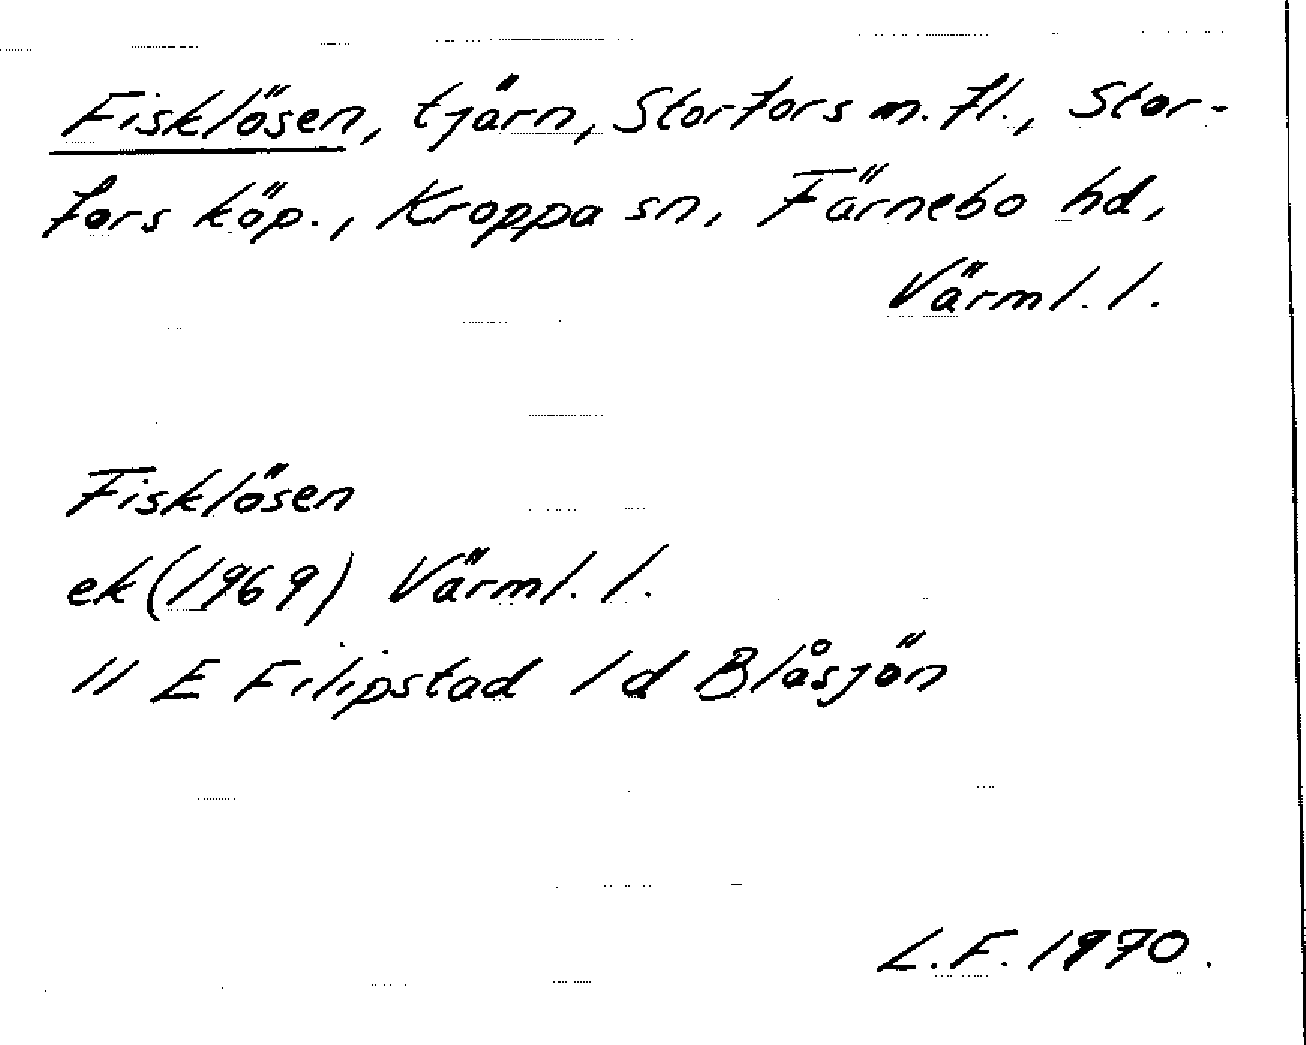 Fisklösen, tjärn, Storfors m.fl., Stor-
fors köp., Kroppa sn, Färnebo hd,
Värml. l.
Fisklösen
ek (1969) Värml. l.
11 E Filipstad 1 d Blåsjön
L.F. 1970.